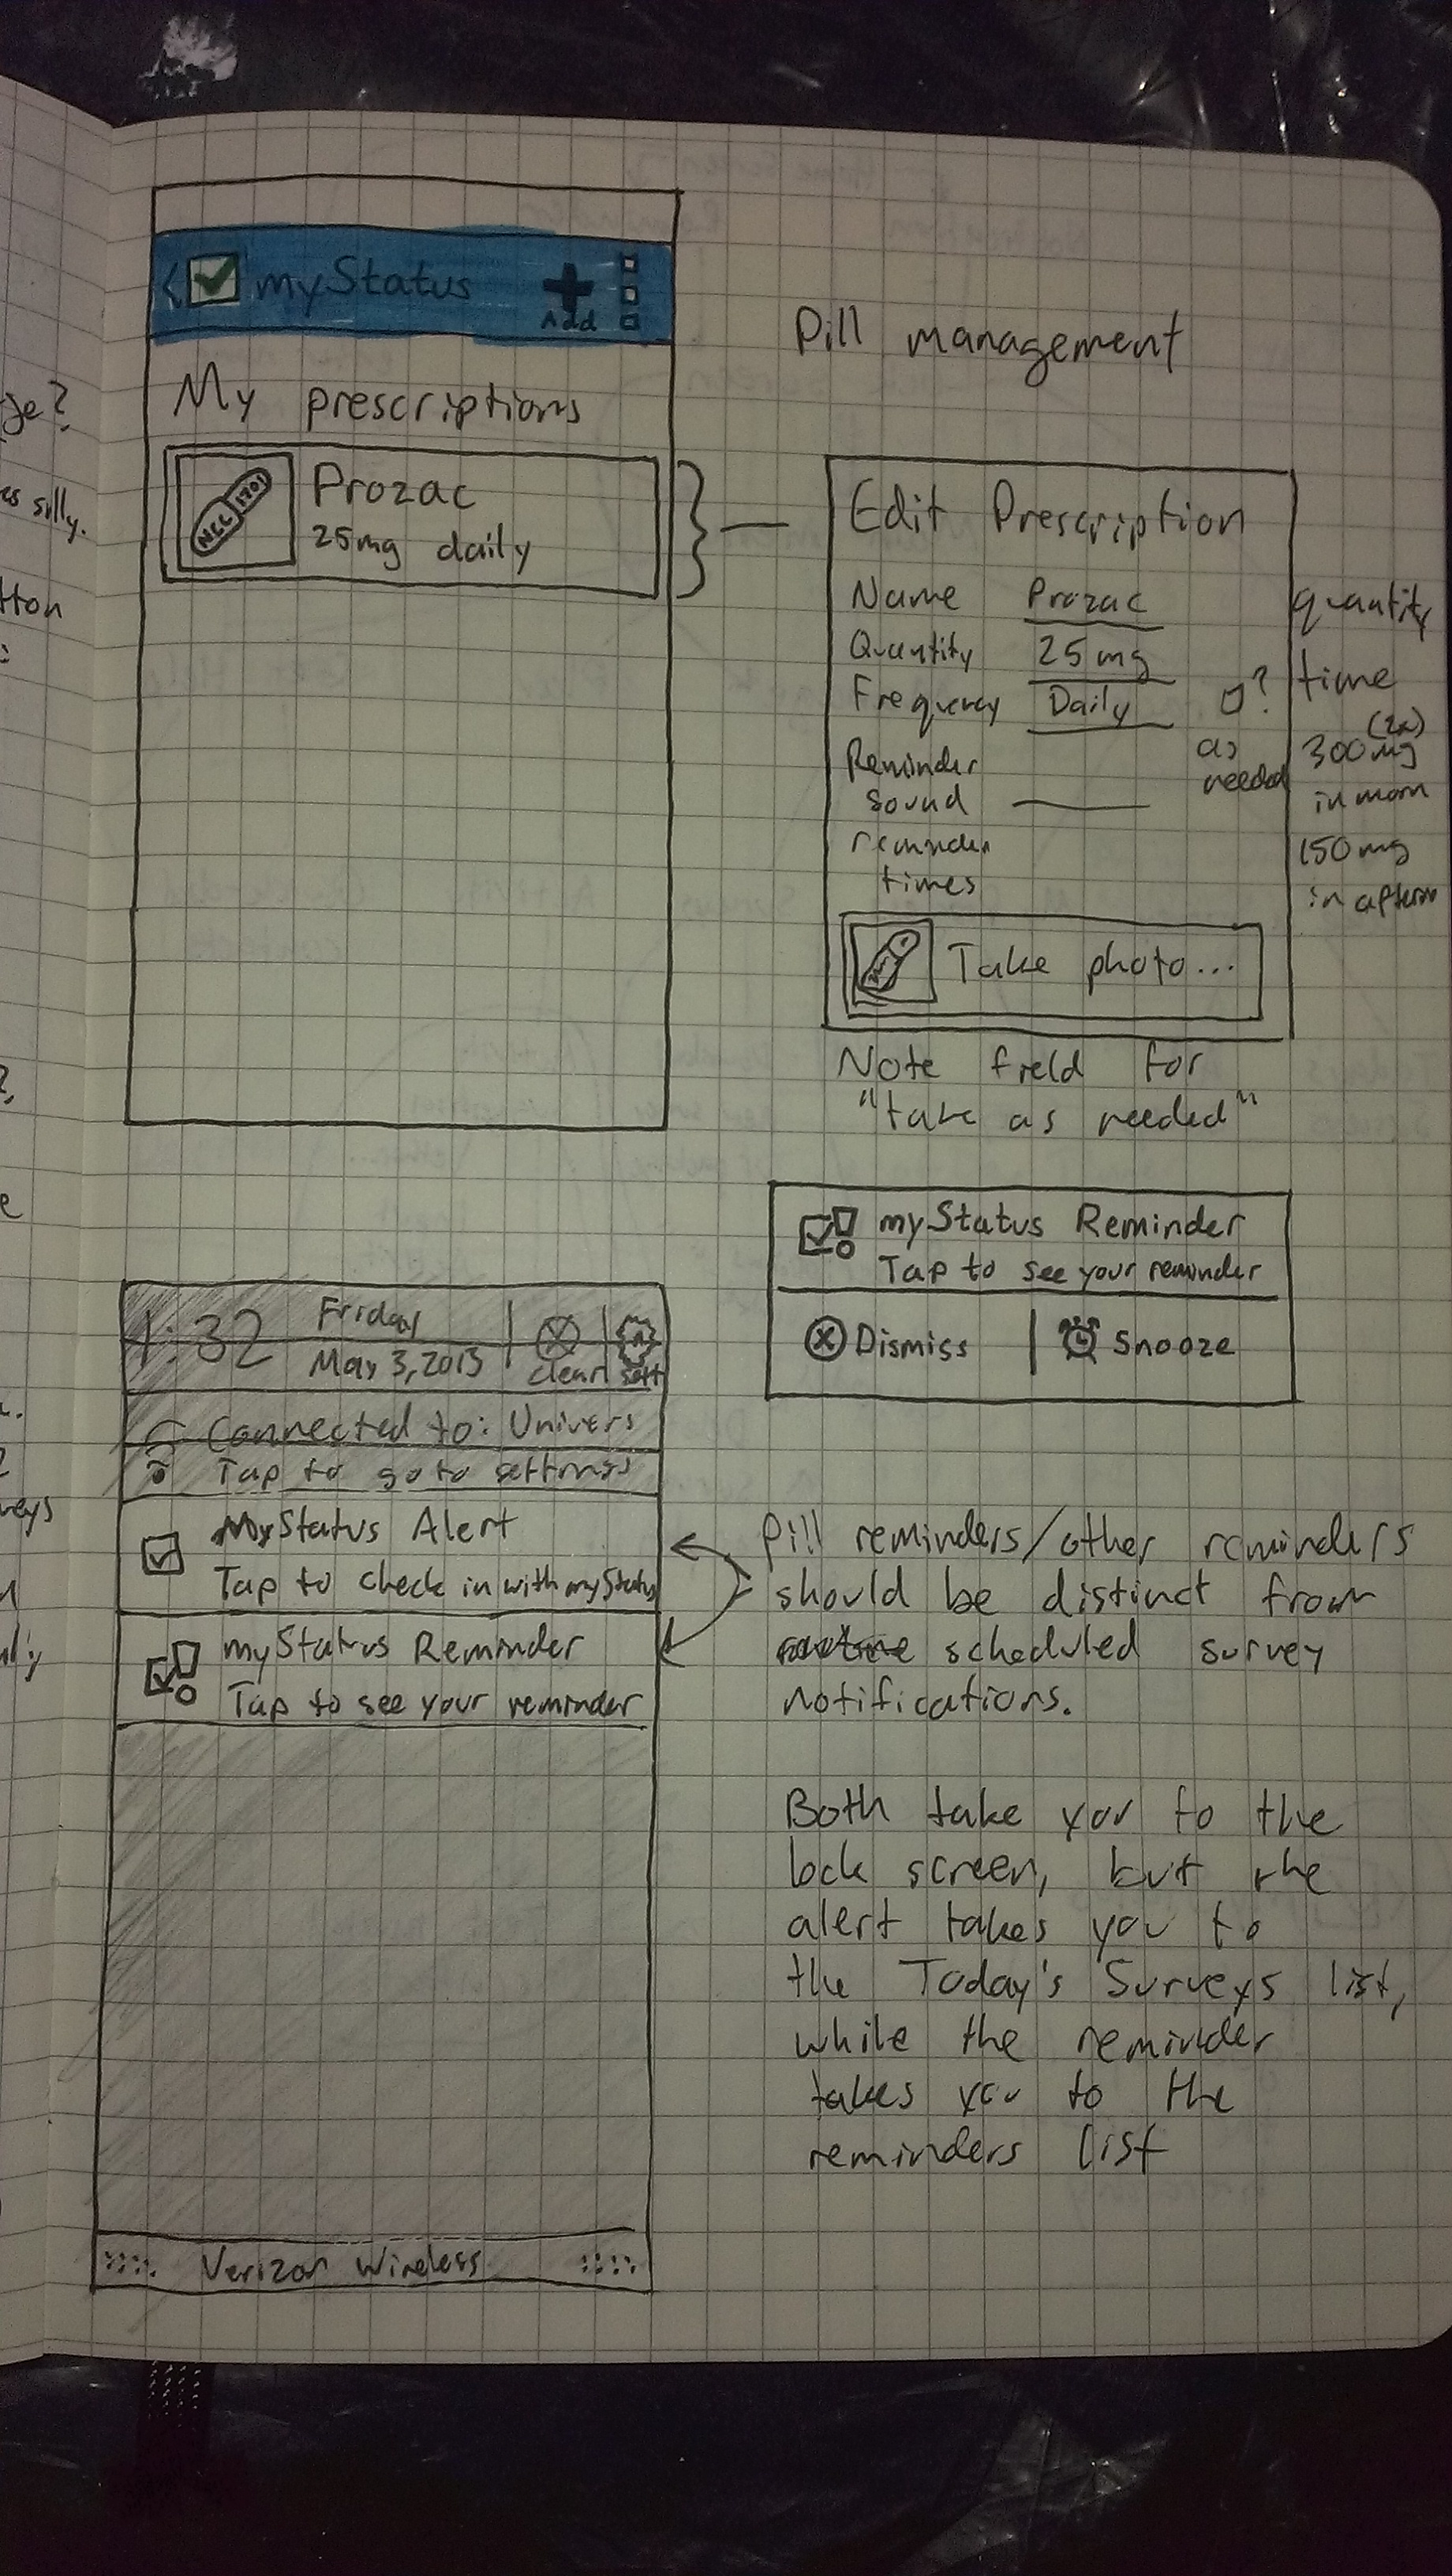 myStatus
Add
My prescriptions
NCC 1701
Prozac
25mg daily
Pill management
Edit Prescription
Name Prozac
Quantity 25 mg
Frequency Daily
?
as
needed
Reminder
sound
reminder
times
Take photo...
quantity
time
(2x)
300mg
in morn
150mg
in aftern
Note field for
"take as needed"
myStatus Reminder
Tap to see your reminder
Dismiss | Snooze
1:32
Friday
May 3, 2013
clear
sett
Connected to: Univers
Tap to go to settings
MyStatus Alert
Tap to check in with myStatus
myStatus Reminder
Tap to see your reminder
Verizon Wireless
Pill reminders/other reminders
should be distinct from
scheduled survey
notifications.
Both take you to the
lock screen, but the
alert takes you to
the Today's Surveys list,
while the reminder
takes you to the
reminders list
je?
as silly.
tton
veys